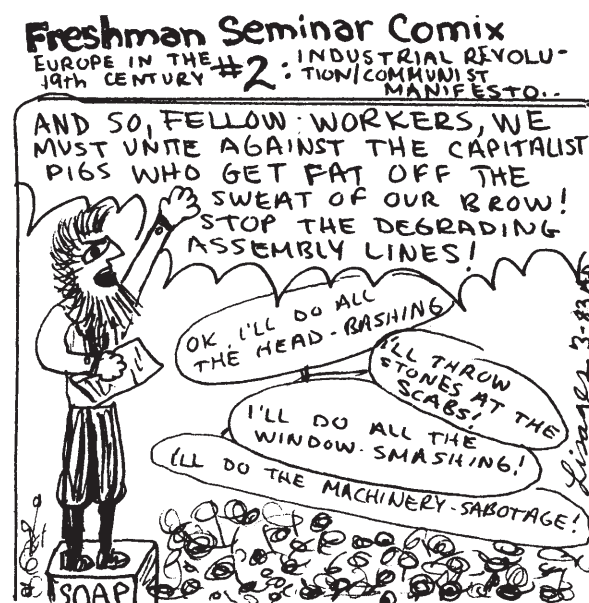 Freshman Seminar Comix
EUROPE IN THE
19th CENTURY
#2:
INDUSTRIAL REVOLU-
TION/COMMUNIST
MANIFESTO..
AND SO, FELLOW WORKERS, WE
MUST UNITE AGAINST THE CAPITALIST
PIGS WHO GET FAT OFF THE
SWEAT OF OUR BROW!
STOP THE DEGRADING
ASSEMBLY LINES!
OK, I'LL DO ALL
THE HEAD-BASHING
I'LL THROW
STONES AT THE
SCABS!
I'LL DO ALL THE
WINDOW-SMASHING!
I'LL DO THE MACHINERY-SABOTAGE!
SOAP